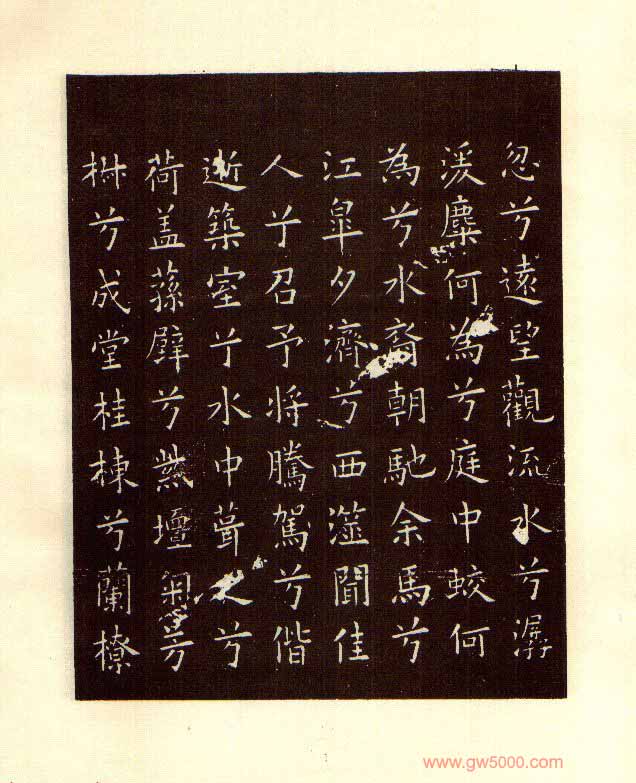 忽兮遠望觀流水兮潺
湲麋何為兮庭中蛟何
為兮水裔朝馳余馬兮
江皐夕濟兮西澨聞佳
人兮召予将騰駕兮偕
逝築室兮水中葺之兮
荷盖蓀壁兮紫壇芳
椒兮成堂桂棟兮蘭橑
www.gw5000.com